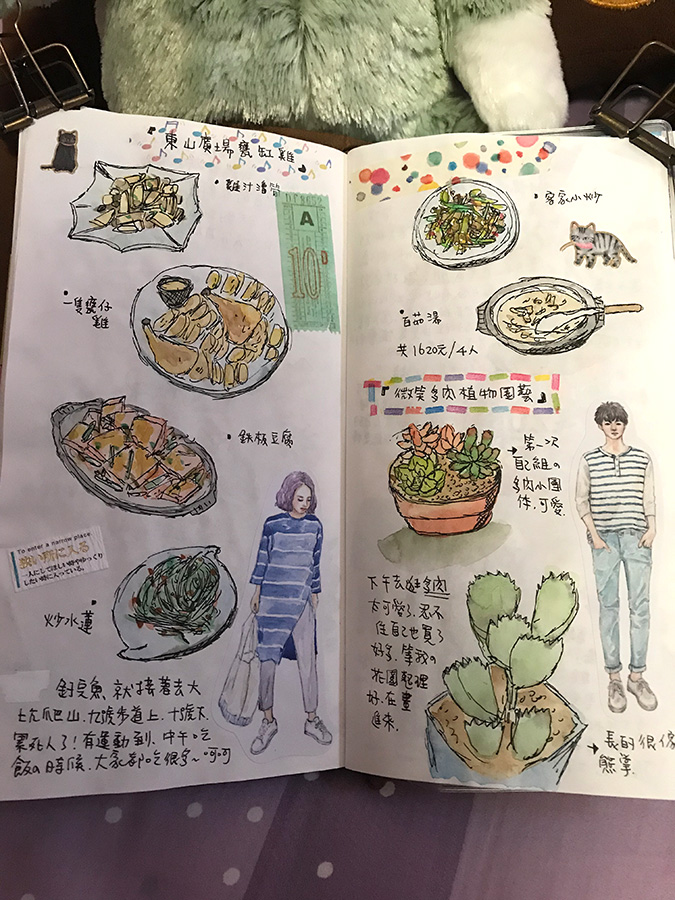 『東山廣場甕缸雞』
・雞汁澆筍
A
10
・一隻甕仔
雞
・鐵板豆腐
To enter a narrow place
狭い所に入る
一人にしてほしい時やゆっくり
したい時に入っている。
炒水蓮
釣完魚 就接著去大
坑爬山.九號步道上.十號下.
累死人了!有運動到.中午吃
飯の時候.大家都吃很多~呵呵
・客家小炒
・百菇湯
共1620元/4人
『微笑多肉植物園藝』
第一次
→自己組の
多肉小團
体.可愛.
下午去逛多肉
太可愛了.忍不
住自己也買了
好多.等我の
花園配理
好.在畫
進來.
→長的很像
熊掌.